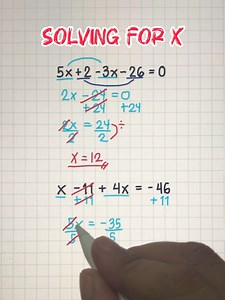 SOLVING FOR X
5x + 2 - 3x - 26 = 0
2x - 24 = 0
+24 +24
2x = 24 ÷
2 2
x = 12
x - 11 + 4x = -46
+11 +11
5x = -35
5 5